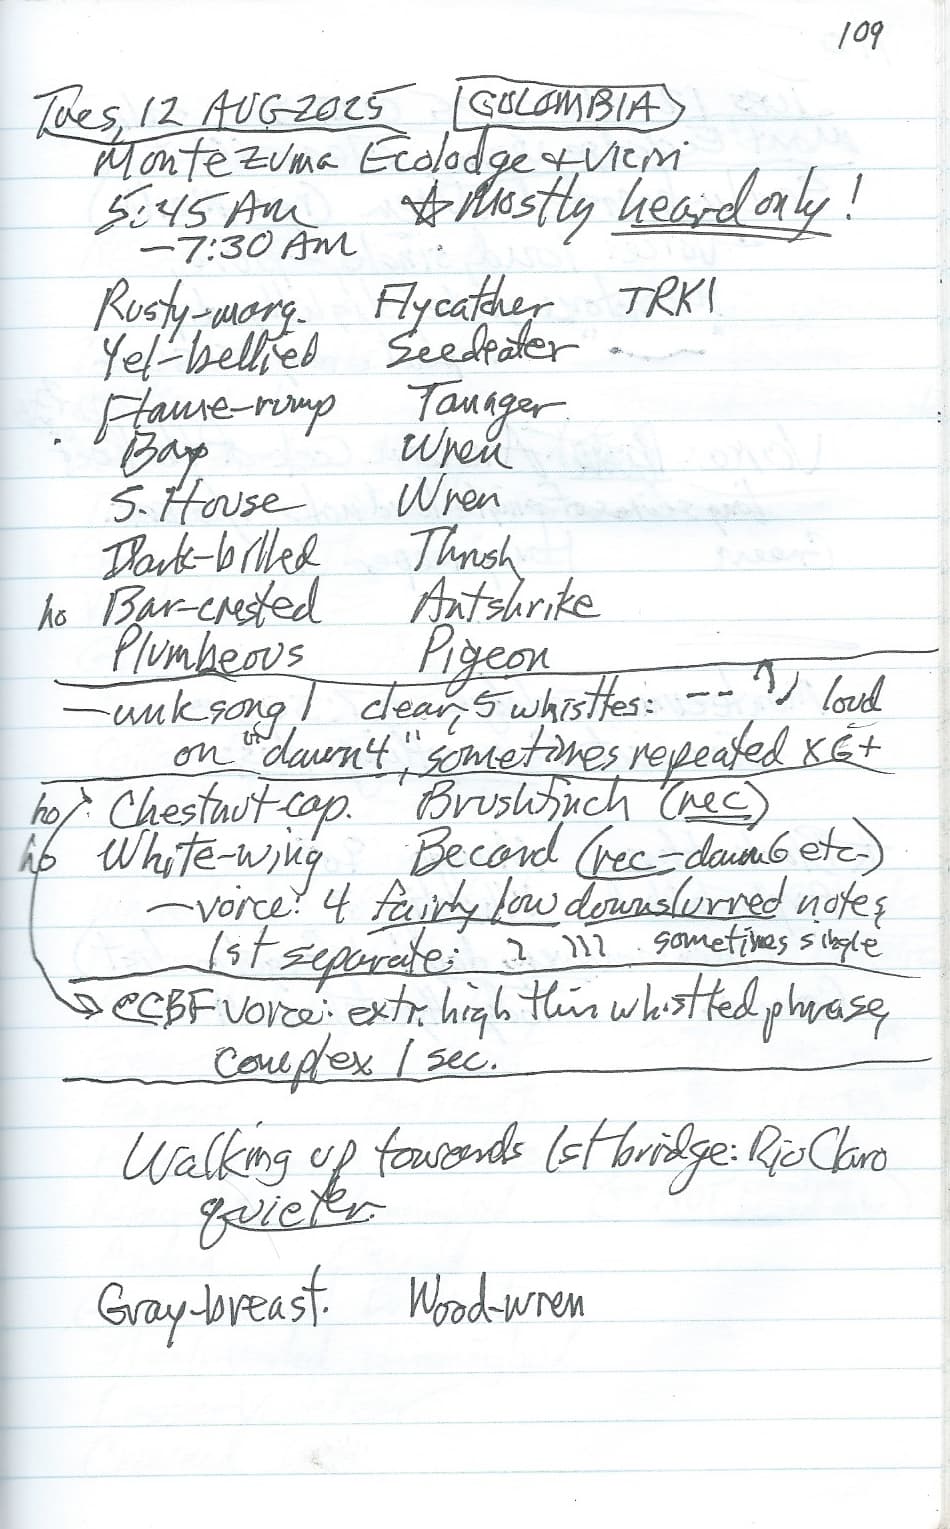 109
Tues, 12 AUG 2025 COLOMBIA
Montezuma Ecolodge + vicin
5:45 AM ☆ Mostly heard only!
—7:30 AM
Rusty-marg. Flycatcher TRKI
Yel-bellied Seedeater
Flame-rump Tanager
Bay Wren
S. House Wren
Dark-billed Thrush
ho Bar-crested Antshrike
Plumbeous Pigeon
—unk song / clear, 5 whistles: -- loud
on "dawn 4", sometimes repeated x6+
ho Chestnut-cap. Brushfinch (rec)
ho White-wing Becard (rec-dawn6 etc.)
—voice: 4 fairly low downslurred notes,
1st separate: sometimes single
CCBF voice: extr. high thin whistled phrase,
complex 1 sec.
Walking up towards 1st bridge: Rio Claro
quieter.
Gray-breast. Wood-wren